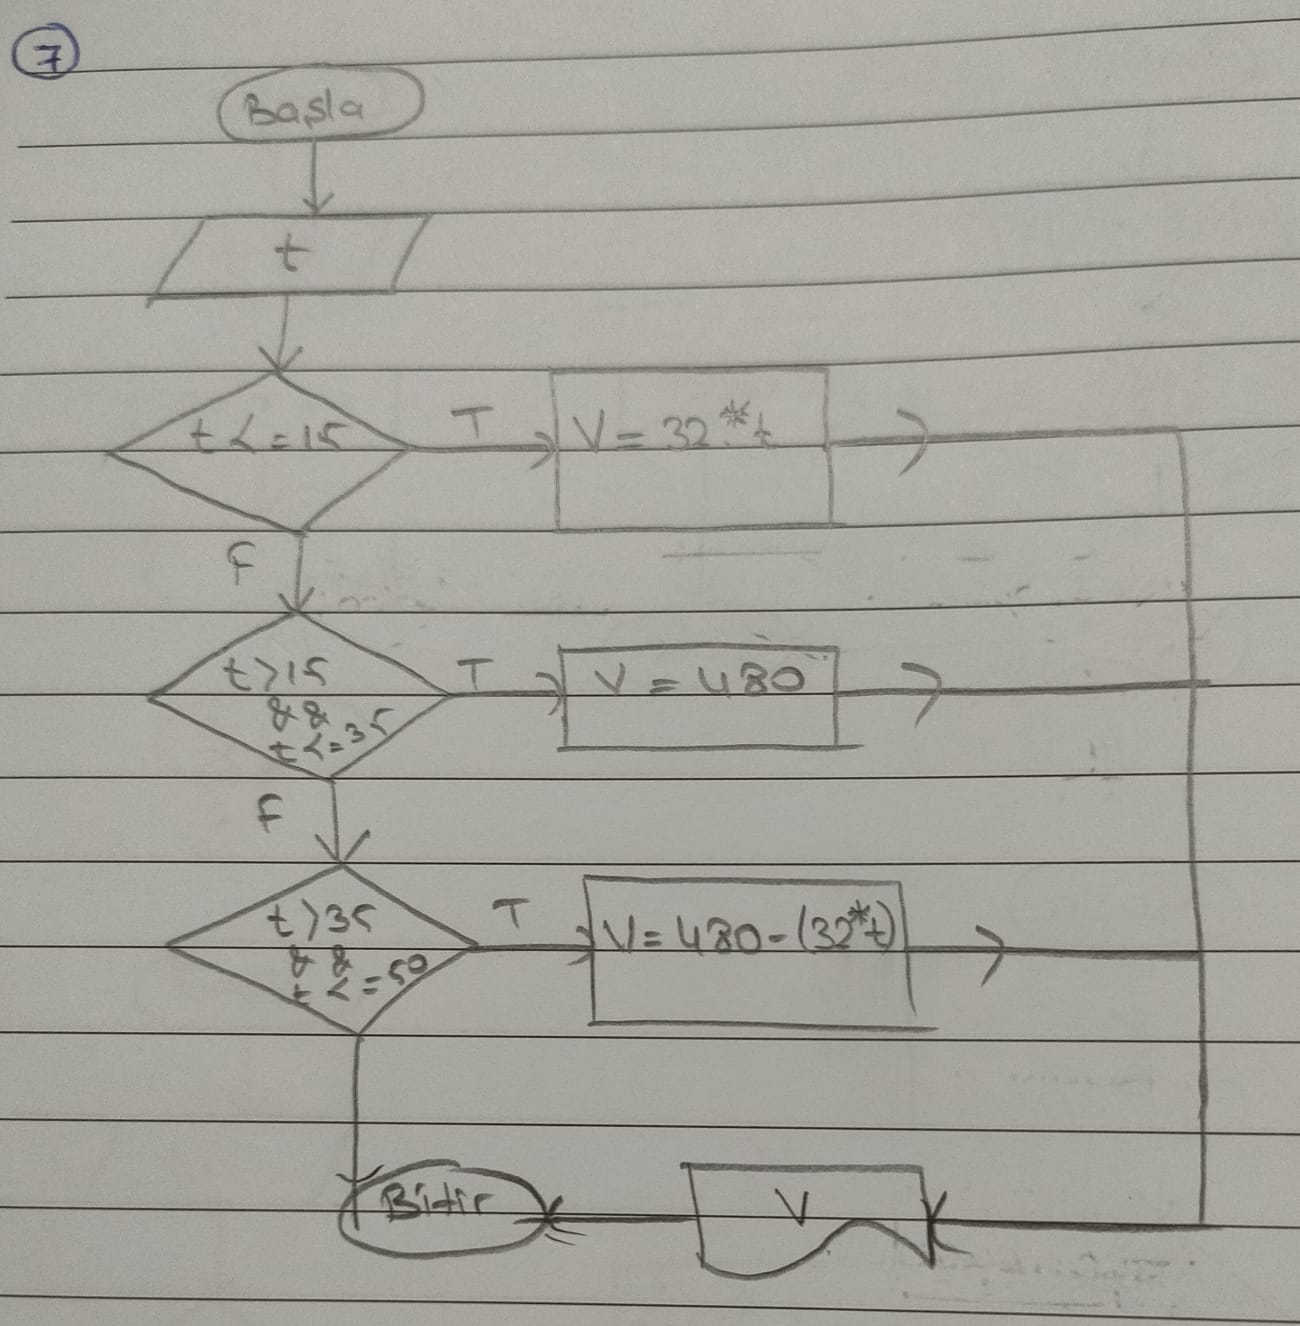 7
Başla
t
t <= 15
T
V = 32 * t
F
t > 15
&&
t <= 35
T
V = 480
F
t > 35
&&
t <= 50
T
V = 480 - (32*t)
Bitir
V